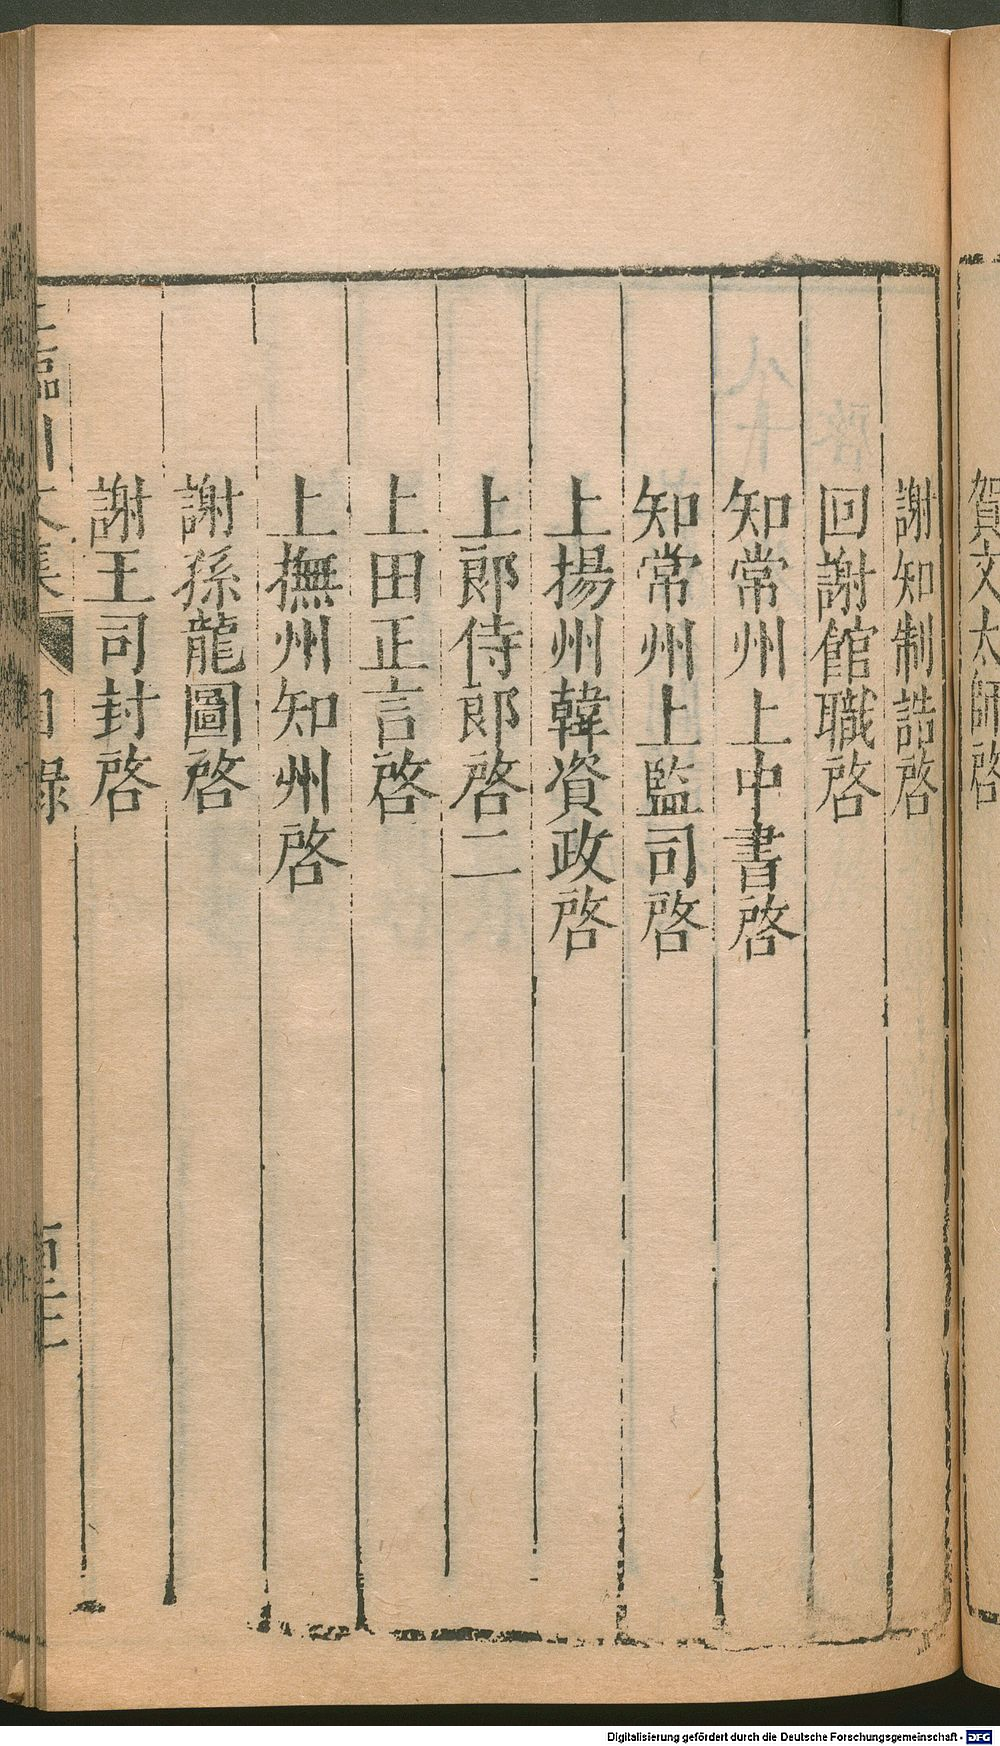 賀文太師啓
謝知制誥啓
回謝館職啓
知常州上中書啓
知常州上監司啓
上揚州韓資政啓
上郎侍郎啓二
上田正言啓
上撫州知州啓
謝孫龍圖啓
謝王司封啓
臨川文集 目錄
Digitalisierung gefördert durch die Deutsche Forschungsgemeinschaft - DFG